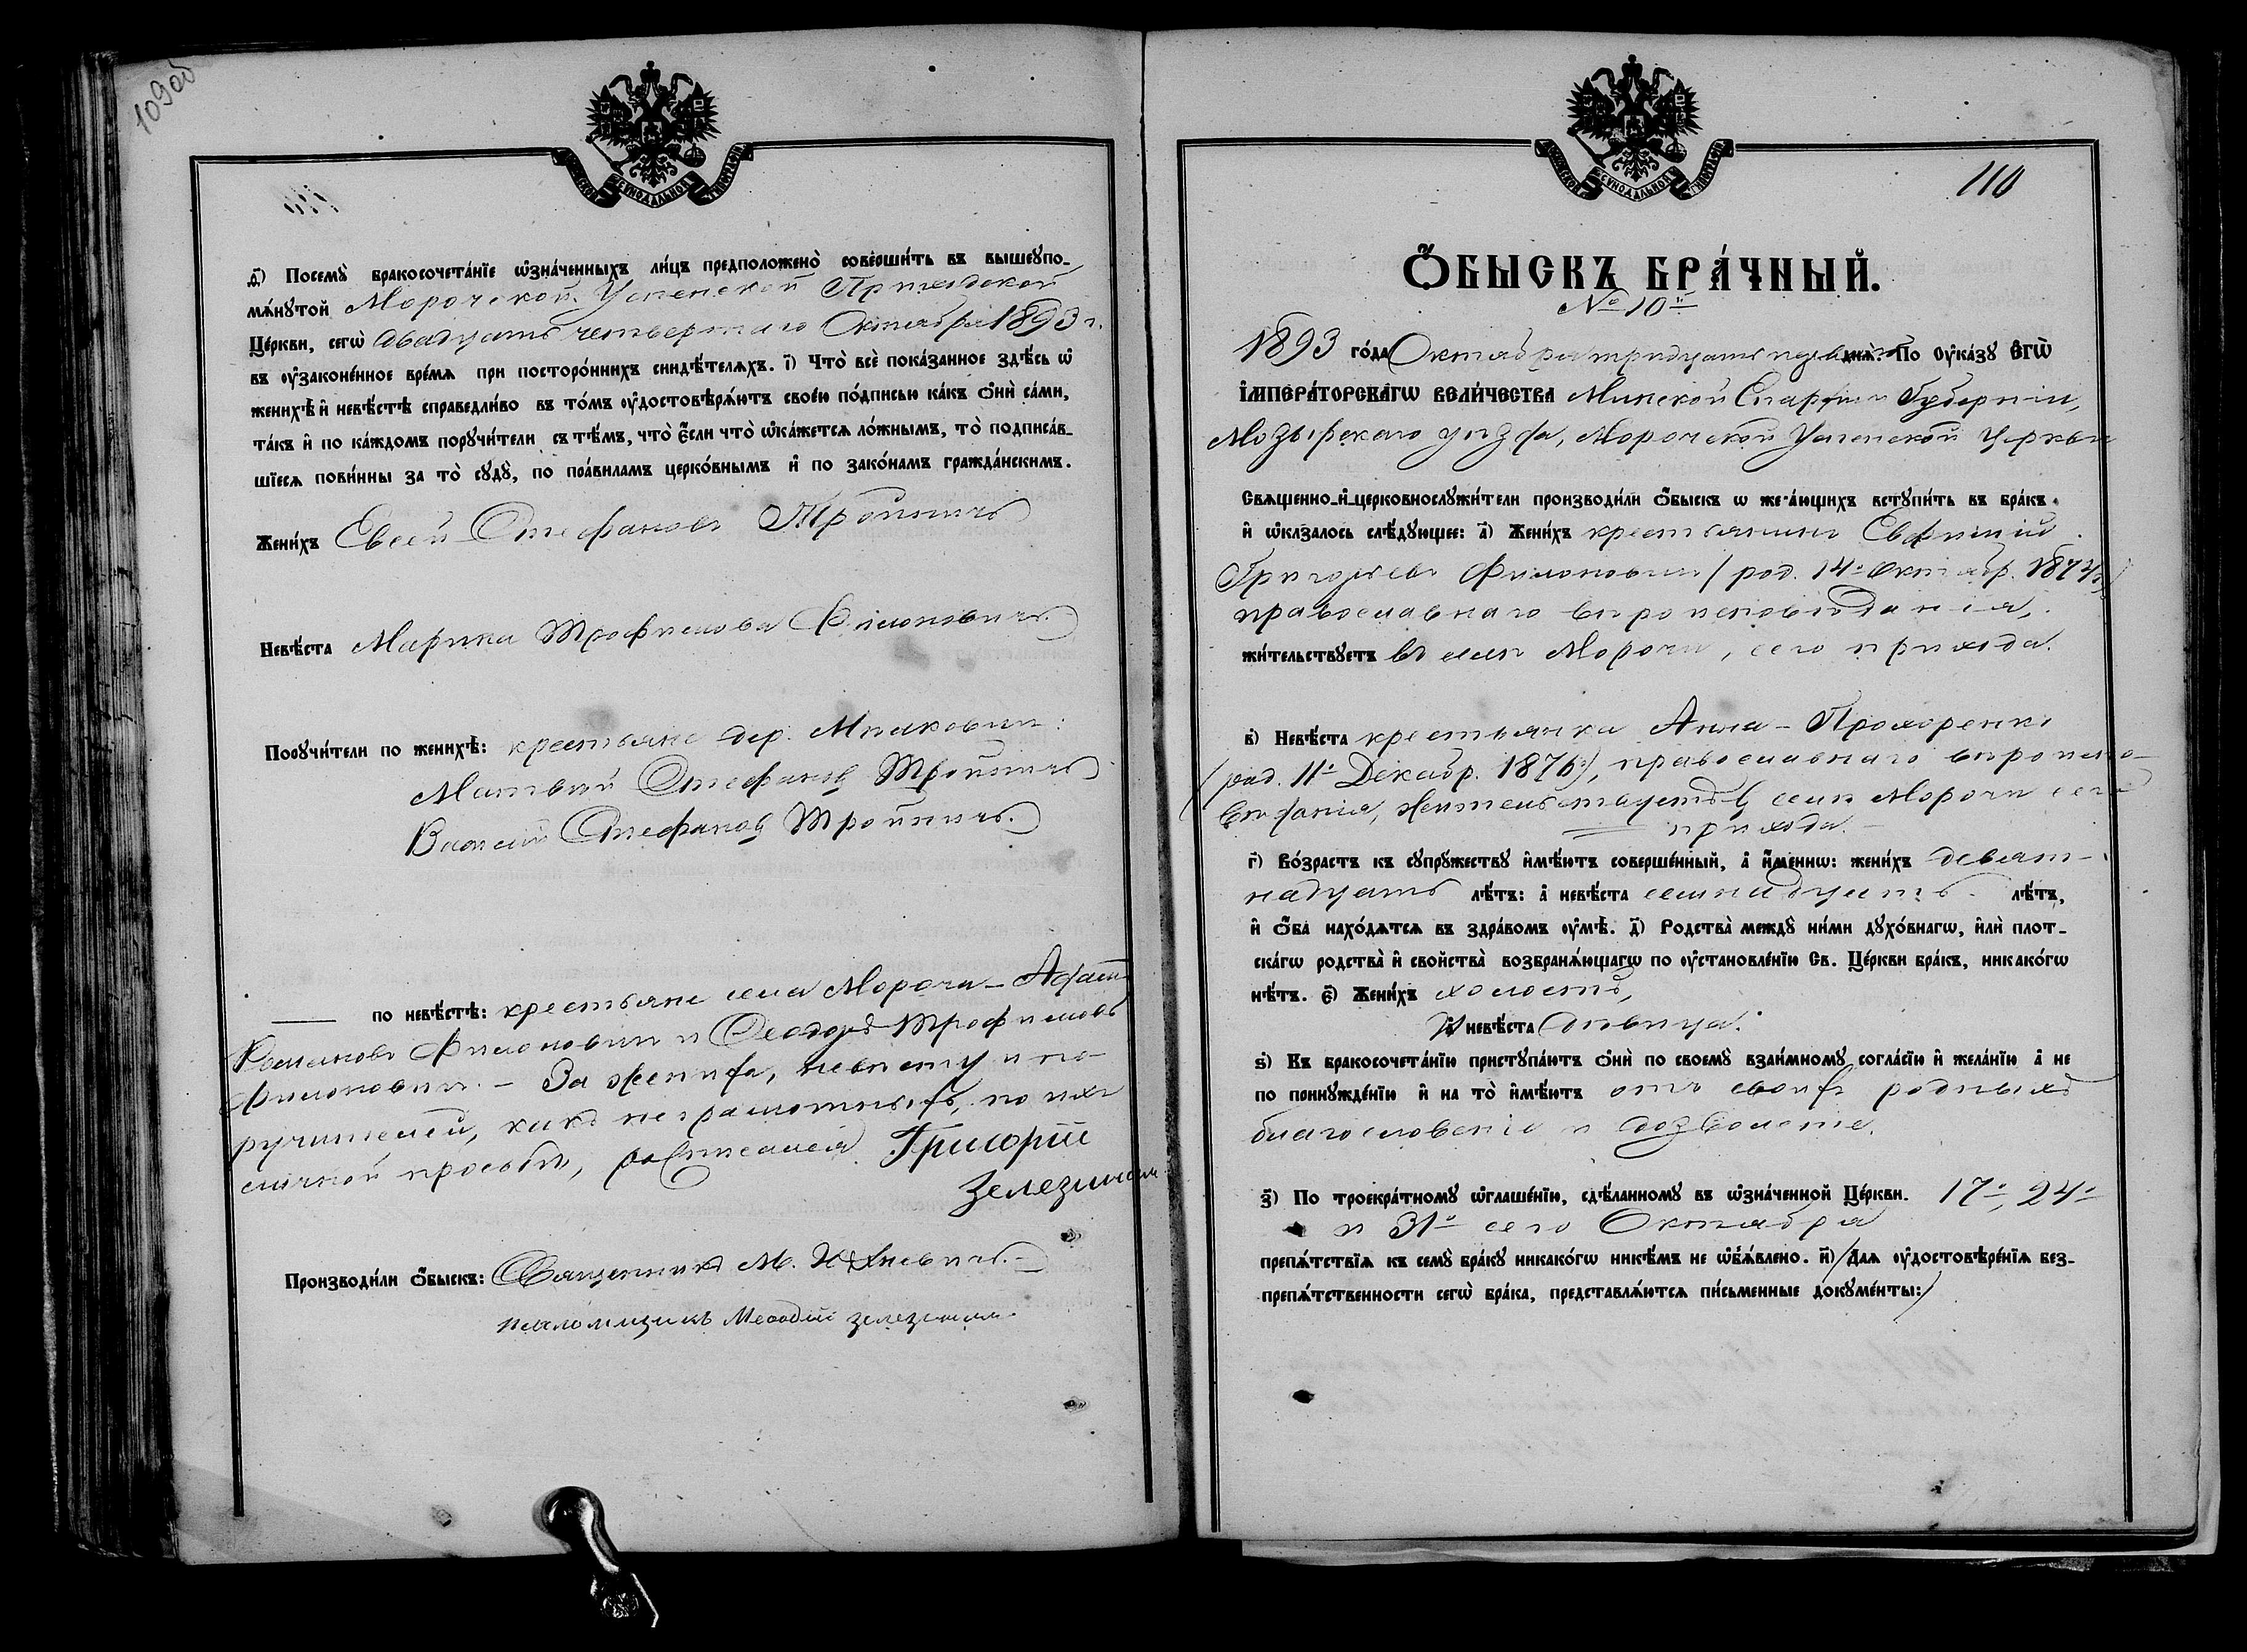 109об
СѴНОДАЛЬНОЙ
д҃) Посемꙋ̀ бракосочета́нїе ѡ҆зна́ченныхъ ли́цъ предположено̀ соверши́ть въ вышеꙋпо-
мѧ́нꙋтой Морочской Успенской Приходской
Це́ркви, сегѡ̀ двадцать четвертаго Октября 1893 г.
въ ᲂу҆зако́не́нное вре́мѧ при посторо́ннихъ свидѣ́телѧхъ. і҃) Что̀ всѐ пока́занное здѣ́сь ѡ҆
женихѣ̀ и҆ невѣ́стѣ справедли́во въ то́мъ ᲂу҆достовѣрѧ́ютъ свое́ю по́дписью ка́къ ѻ҆нѝ са́ми,
та́къ и҆ по ка́ждомъ порꙋчи́тели съ тѣ́мъ, что̀ є҆́сли что̀ ѡ҆ка́жетсѧ ло́жнымъ, то̀ подписа́в-
шїесѧ пови́нны за то̀ сꙋдꙋ̀, по пра́виламъ церко́внымъ и҆ по зако́намъ гражда́нскимъ.
Жени́хъ Евсей Стефановъ Тройничъ
Невѣ́ста Марина Трофимова Филоновичъ.
Порꙋчи́тели по женихѣ̀: крестьяне дер.
Матвѣй Стефановъ Тройничъ
Василій Стефановъ Тройничъ.
по невѣ́стѣ: крестьяне села Мороча –
Филоновичъ и Ѳеодоръ Трофимовъ
Филоновичъ. – За жениха, невѣсту и по-
ручителей, какъ неграмотныхъ, по ихъ
личной просьбѣ, росписался Григорій
Произво́дили ѻ҆́быскъ: Священникъ М.
псаломщикъ Меѳодій
СѴНОДАЛЬНОЙ
110
Ѻ҆́БЫСКЪ БРА́ЧНЫЙ.
№ 10й
1893 го́да Октября тридцать перваго днѧ̀. По ᲂу҆ка́зꙋ Є҆ГѠ̀
І҆МПЕРА́ТОРСКАГѠ ВЕЛИ́ЧЕСТВА Минской Епархіи и Губерніи,
Мозырскаго уѣзда, Морочской Успенской церкви
Свѧще́нно-и҆-церковнослꙋжи́тели производи́ли ѻ҆́быскъ ѡ жела́ющихъ встꙋпи́ть въ бра́къ
и҆ ѡ҆каза́лось слѣ́дꙋющее: а҃) Жени́хъ крестьянинъ Евфимій
Григорьевъ Филоновичъ (род. 14го Октябр. 1874 г.)
православнаго вѣроисповѣданія,
жи́тельствꙋетъ въ селѣ Морочи, сего прихода.
в҃) Невѣ́ста крестьянка Анна – Прохоренко
(род. 11го Декабр. 1876 г.), православнаго вѣроиспо-
вѣданія, жительствуетъ въ селѣ Морочи сего
прихода. –
г҃) Во́зрастъ къ сꙋпрꙋ́жествꙋ и҆мѣ́ютъ соверше́нный, а҆ и҆́меннѡ: жени́хъ девят-
надцать лѣ́тъ: а҆ невѣ́ста семнадцать лѣ́тъ,
и҆ ѻ҆́ба нахо́дѧтсѧ въ здра́вомъ ᲂу҆мѣ̀. д҃) Родства̀ междꙋ̀ ни́ми дꙋхо́внагѡ, и҆лѝ плот-
ска́гѡ родства̀ и҆ свойства̀ возбранѧ́ющагѡ по ᲂу҆становле́нїю Св. Це́ркви бра́къ, никако́гѡ
нѣ́тъ. є҃) Жени́хъ холостъ,
и҆ невѣ́ста дѣвица.
ѕ҃) Къ бракосочета́нїю пристꙋпа́ютъ ѻ҆нѝ по своемꙋ̀ взаи́мномꙋ согла́сїю и҆ жела́нїю а҆ не
по принꙋжде́нїю и҆ на то̀ и҆мѣ́ютъ отъ своихъ родныхъ
благословеніе и дозволеніе.
з҃) По троекра́тномꙋ ѡ҆глаше́нїю, сдѣ́ланномꙋ въ ѡ҆зна́ченной Це́ркви. 17го, 24го
и 31го сего Октября
препѧ́тствїѧ къ семꙋ̀ бра́кꙋ никако́гѡ никѣ́мъ не ѡ҆б̾ѧ́влено. и҃) / Длѧ ᲂу҆достовѣре́нїѧ без-
препѧ́тственности сегѡ̀ бра́ка, представлѧ́ютсѧ пи́сьменные докꙋме́нты: /